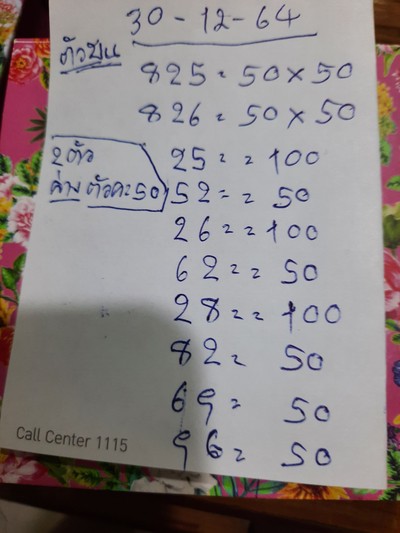 30-12-64
ตัวบน
825 = 50 x 50
826 = 50 x 50
2 ตัว
ล่าง ตัวละ 50
25 = = 100
52 = = 50
26 = = 100
62 = = 50
28 = = 100
82 = 50
69 = 50
96 = 50
Call Center 1115